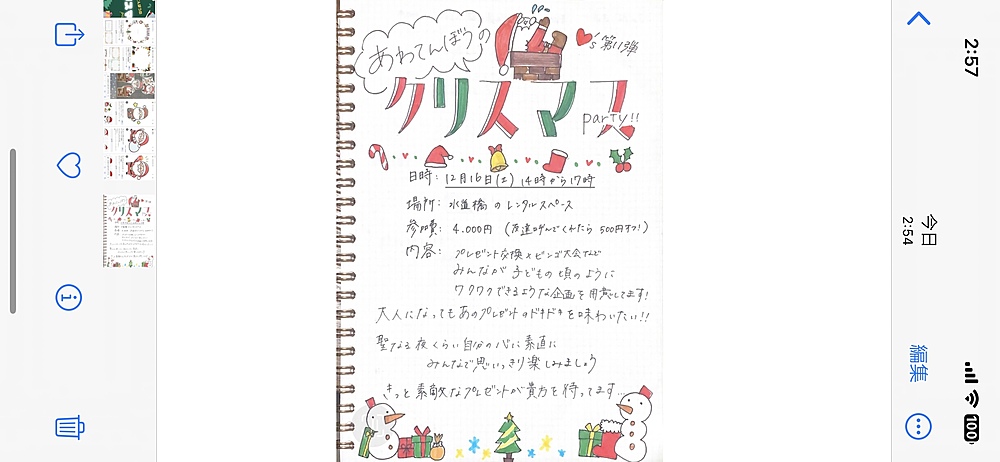 あわてんぼうの
's 第11弾
クリスマス
party!!
日時: 12月16日(土) 14時から17時
場所: 水道橋のレンタルスペース
参加費: 4.000円 (友達呼んでくれたら 500円オフ!)
内容: プレゼント交換 × ビンゴ大会など
みんなが子どもの頃のように
ワクワクできるような企画を用意してます!
大人になってもあのプレゼントのドキドキを味わいたい!!
聖なる夜くらい自分の心に素直に
みんなで思いっきり楽しみましょう
きっと素敵なプレゼントが貴方を待ってます...
2:57
100
今日
2:54
編集